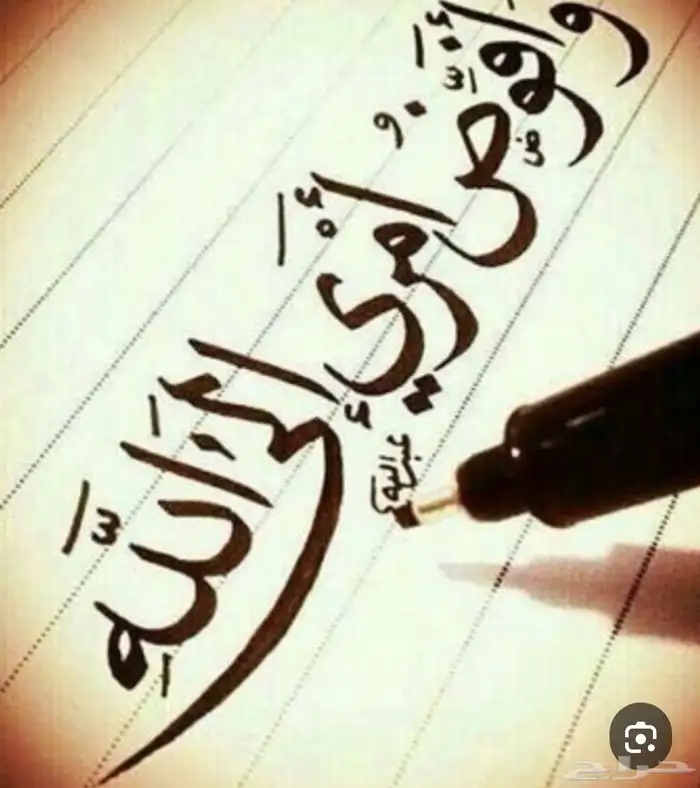 وَأُفَوِّضُ أَمْرِي إِلَى اللَّهِ
عبدالله
حراج